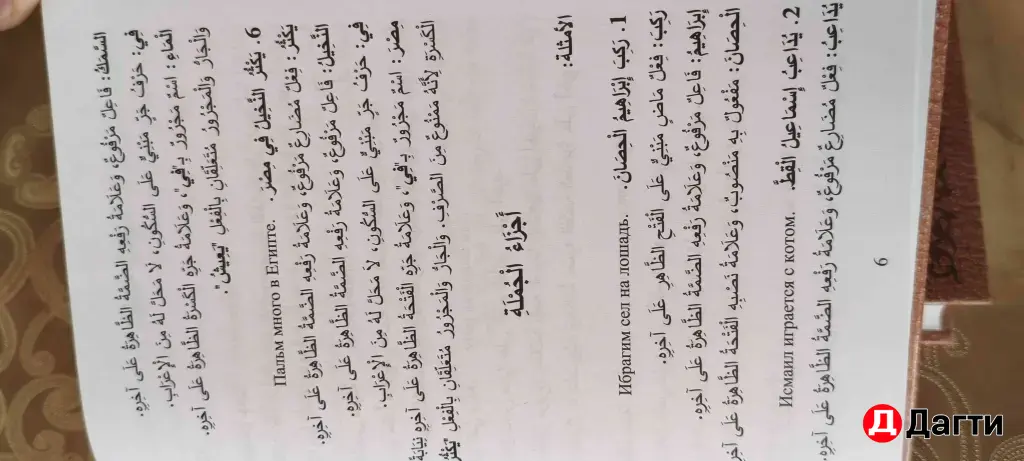 السَّمَكُ: فَاعِلٌ مَرْفُوعٌ، وَعَلَامَةُ رَفْعِهِ الضَّمَّةُ الظَّاهِرَةُ عَلَى آخِرِهِ.
فِي: حَرْفُ جَرٍّ مَبْنِيٌّ عَلَى السُّكُونِ، لَا مَحَلَّ لَهُ مِنَ الْإِعْرَابِ.
الْمَاءِ: اسْمٌ مَجْرُورٌ بِـ"فِي"، وَعَلَامَةُ جَرِّهِ الْكَسْرَةُ الظَّاهِرَةُ عَلَى آخِرِهِ.
وَالْجَارُّ وَالْمَجْرُورُ مُتَعَلِّقَانِ بِالْفِعْلِ "يَعِيشُ".
6 يَكْثُرُ النَّخِيلُ فِي مِصْرَ. Пальм много в Египте.
يَكْثُرُ: فِعْلٌ مُضَارِعٌ مَرْفُوعٌ، وَعَلَامَةُ رَفْعِهِ الضَّمَّةُ الظَّاهِرَةُ عَلَى آخِرِهِ.
النَّخِيلُ: فَاعِلٌ مَرْفُوعٌ، وَعَلَامَةُ رَفْعِهِ الضَّمَّةُ الظَّاهِرَةُ عَلَى آخِرِهِ.
فِي: حَرْفُ جَرٍّ مَبْنِيٌّ عَلَى السُّكُونِ، لَا مَحَلَّ لَهُ مِنَ الْإِعْرَابِ.
مِصْرَ: اسْمٌ مَجْرُورٌ بِـ"فِي"، وَعَلَامَةُ جَرِّهِ الْفَتْحَةُ الظَّاهِرَةُ عَلَى آخِرِهِ نِيَابَةً
الْكَسْرَةِ لِأَنَّهُ مَمْنُوعٌ مِنَ الصَّرْفِ. وَالْجَارُّ وَالْمَجْرُورُ مُتَعَلِّقَانِ بِالْفِعْلِ
أَجْزَاءُ الْجُمْلَةِ
الأَمْثِلَة:
1. رَكِبَ إِبْرَاهِيمُ الْحِصَانَ. Ибрагим сел на лошадь.
رَكِبَ: فِعْلٌ مَاضٍ مَبْنِيٌّ عَلَى الْفَتْحِ الظَّاهِرِ عَلَى آخِرِهِ.
إِبْرَاهِيمُ: فَاعِلٌ مَرْفُوعٌ، وَعَلَامَةُ رَفْعِهِ الضَّمَّةُ الظَّاهِرَةُ عَلَى آخِرِهِ.
الْحِصَانَ: مَفْعُولٌ بِهِ مَنْصُوبٌ، وَعَلَامَةُ نَصْبِهِ الْفَتْحَةُ الظَّاهِرَةُ عَلَى
2. يُدَاعِبُ إِسْمَاعِيلُ الْقِطَّ. Исмаил играется с котом.
يُدَاعِبُ: فِعْلٌ مُضَارِعٌ مَرْفُوعٌ، وَعَلَامَةُ رَفْعِهِ الضَّمَّةُ الظَّاهِرَةُ عَلَى آخِرِهِ.
6
Дагти